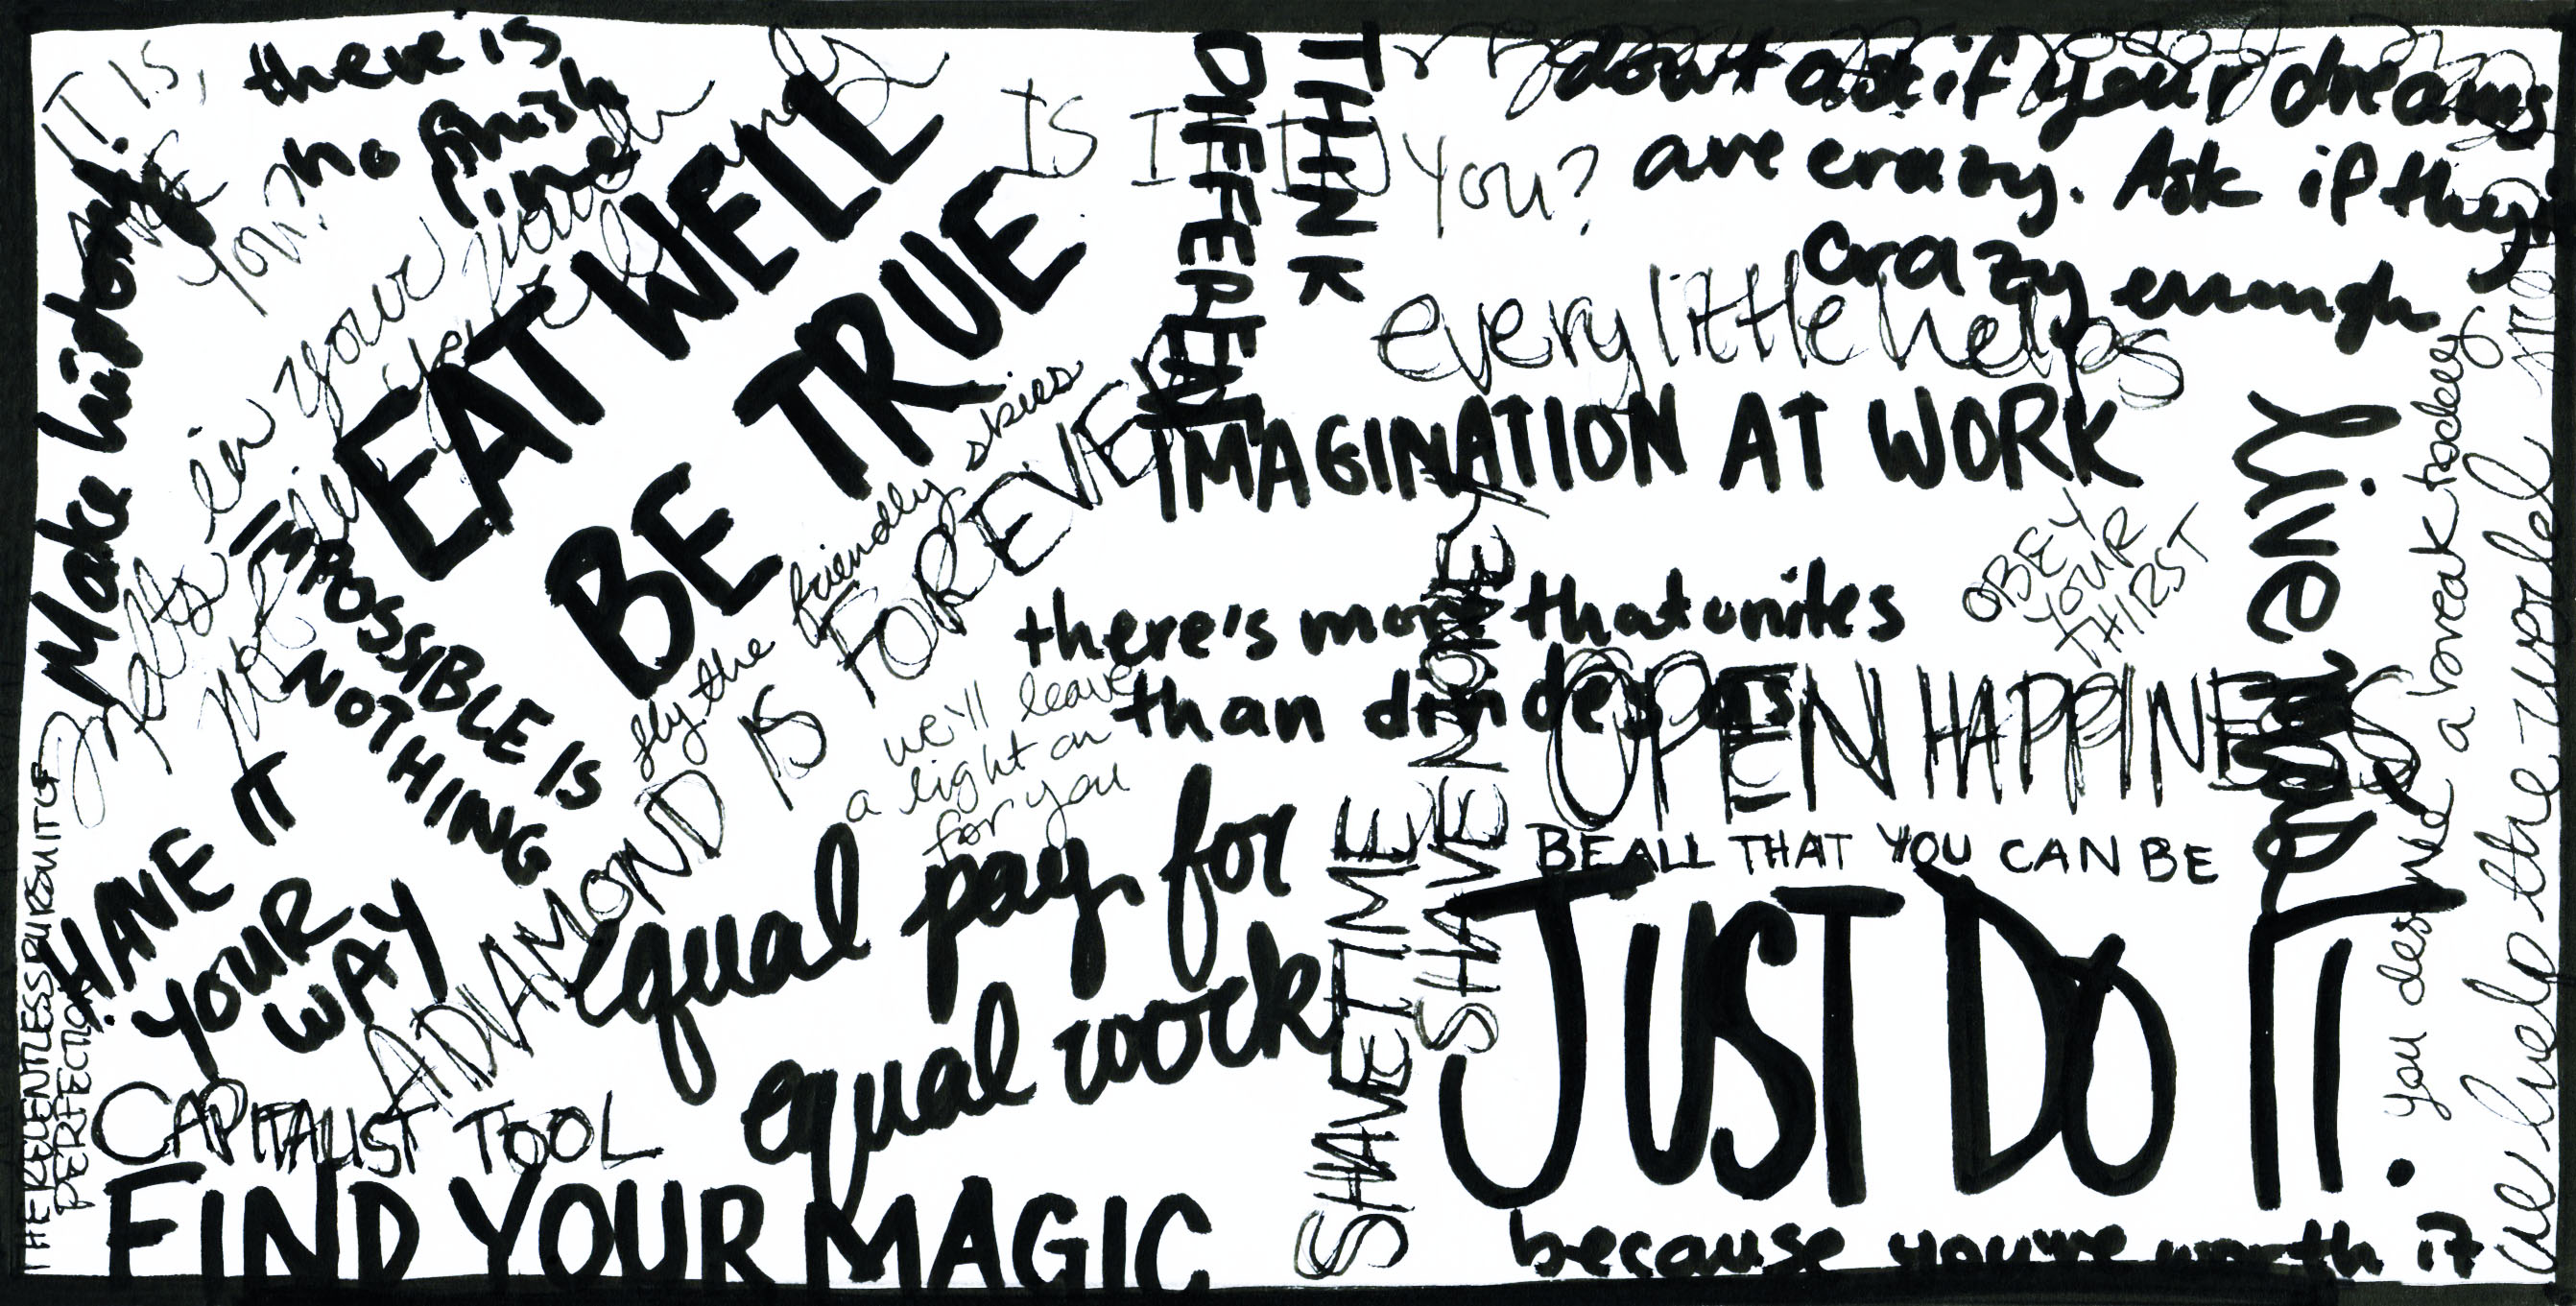 IT IS,
ARE
YOU?
there is
no finish
line
Make history.
melts in your
mouth
not in your
hand
EAT WELL
BE TRUE
IMPOSSIBLE IS
NOTHING
fly the friendly skies
A DIAMOND IS FOREVER
we'll leave
a light on
for you
HAVE IT
YOUR
WAY
THE RELENTLESS PURSUIT OF
PERFECTION
CAPITALIST TOOL
FIND YOUR MAGIC
equal pay for
equal work
THINK
DIFFERENT
IS IT IN YOU?
don't ask if your dreams
are crazy. Ask if they
crazy enough
every little helps
IMAGINATION AT WORK
there's more that unites
than divides us
OBEY
YOUR
THIRST
SHAVE TIME
SHAVE MONEY
OPEN HAPPINESS
BE ALL THAT YOU CAN BE
JUST DO IT.
because you're worth it
live
you deserve a break today
we help the world